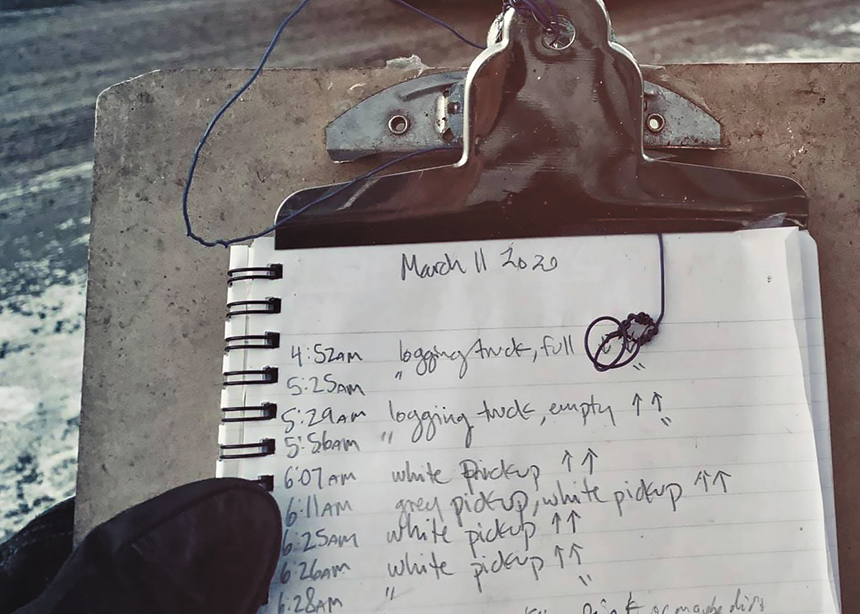 March 11 2020
4:52AM logging truck, full
5:25AM " "
5:29AM logging truck, empty ↑↑
5:56AM " "
6:07AM white pickup ↑↑
6:11AM grey pickup, white pickup ↑↑
6:25AM white pickup ↑↑
6:26AM white pickup ↑↑
6:28AM " "
or maybe